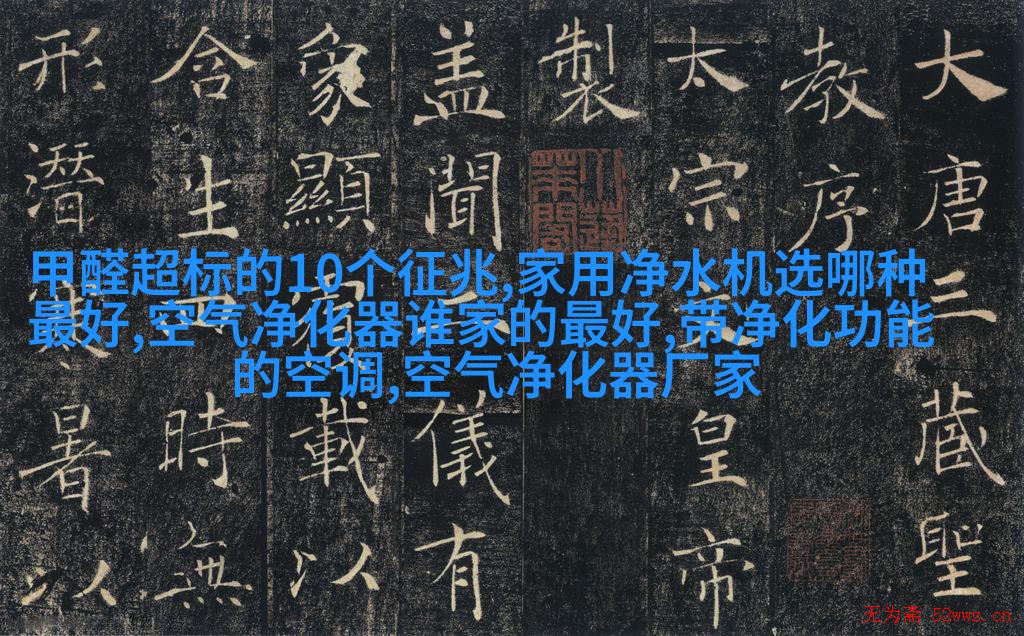 大唐三藏聖
教序
太宗文皇帝
製
盖聞二儀有
象顯覆載以
含生四時無
形潛寒暑以
甲醛超标的10个征兆,家用净水机选哪种
最好,空气净化器谁家的最好,带净化功能
的空调,空气净化器厂家
无为斋 52wwz.cn